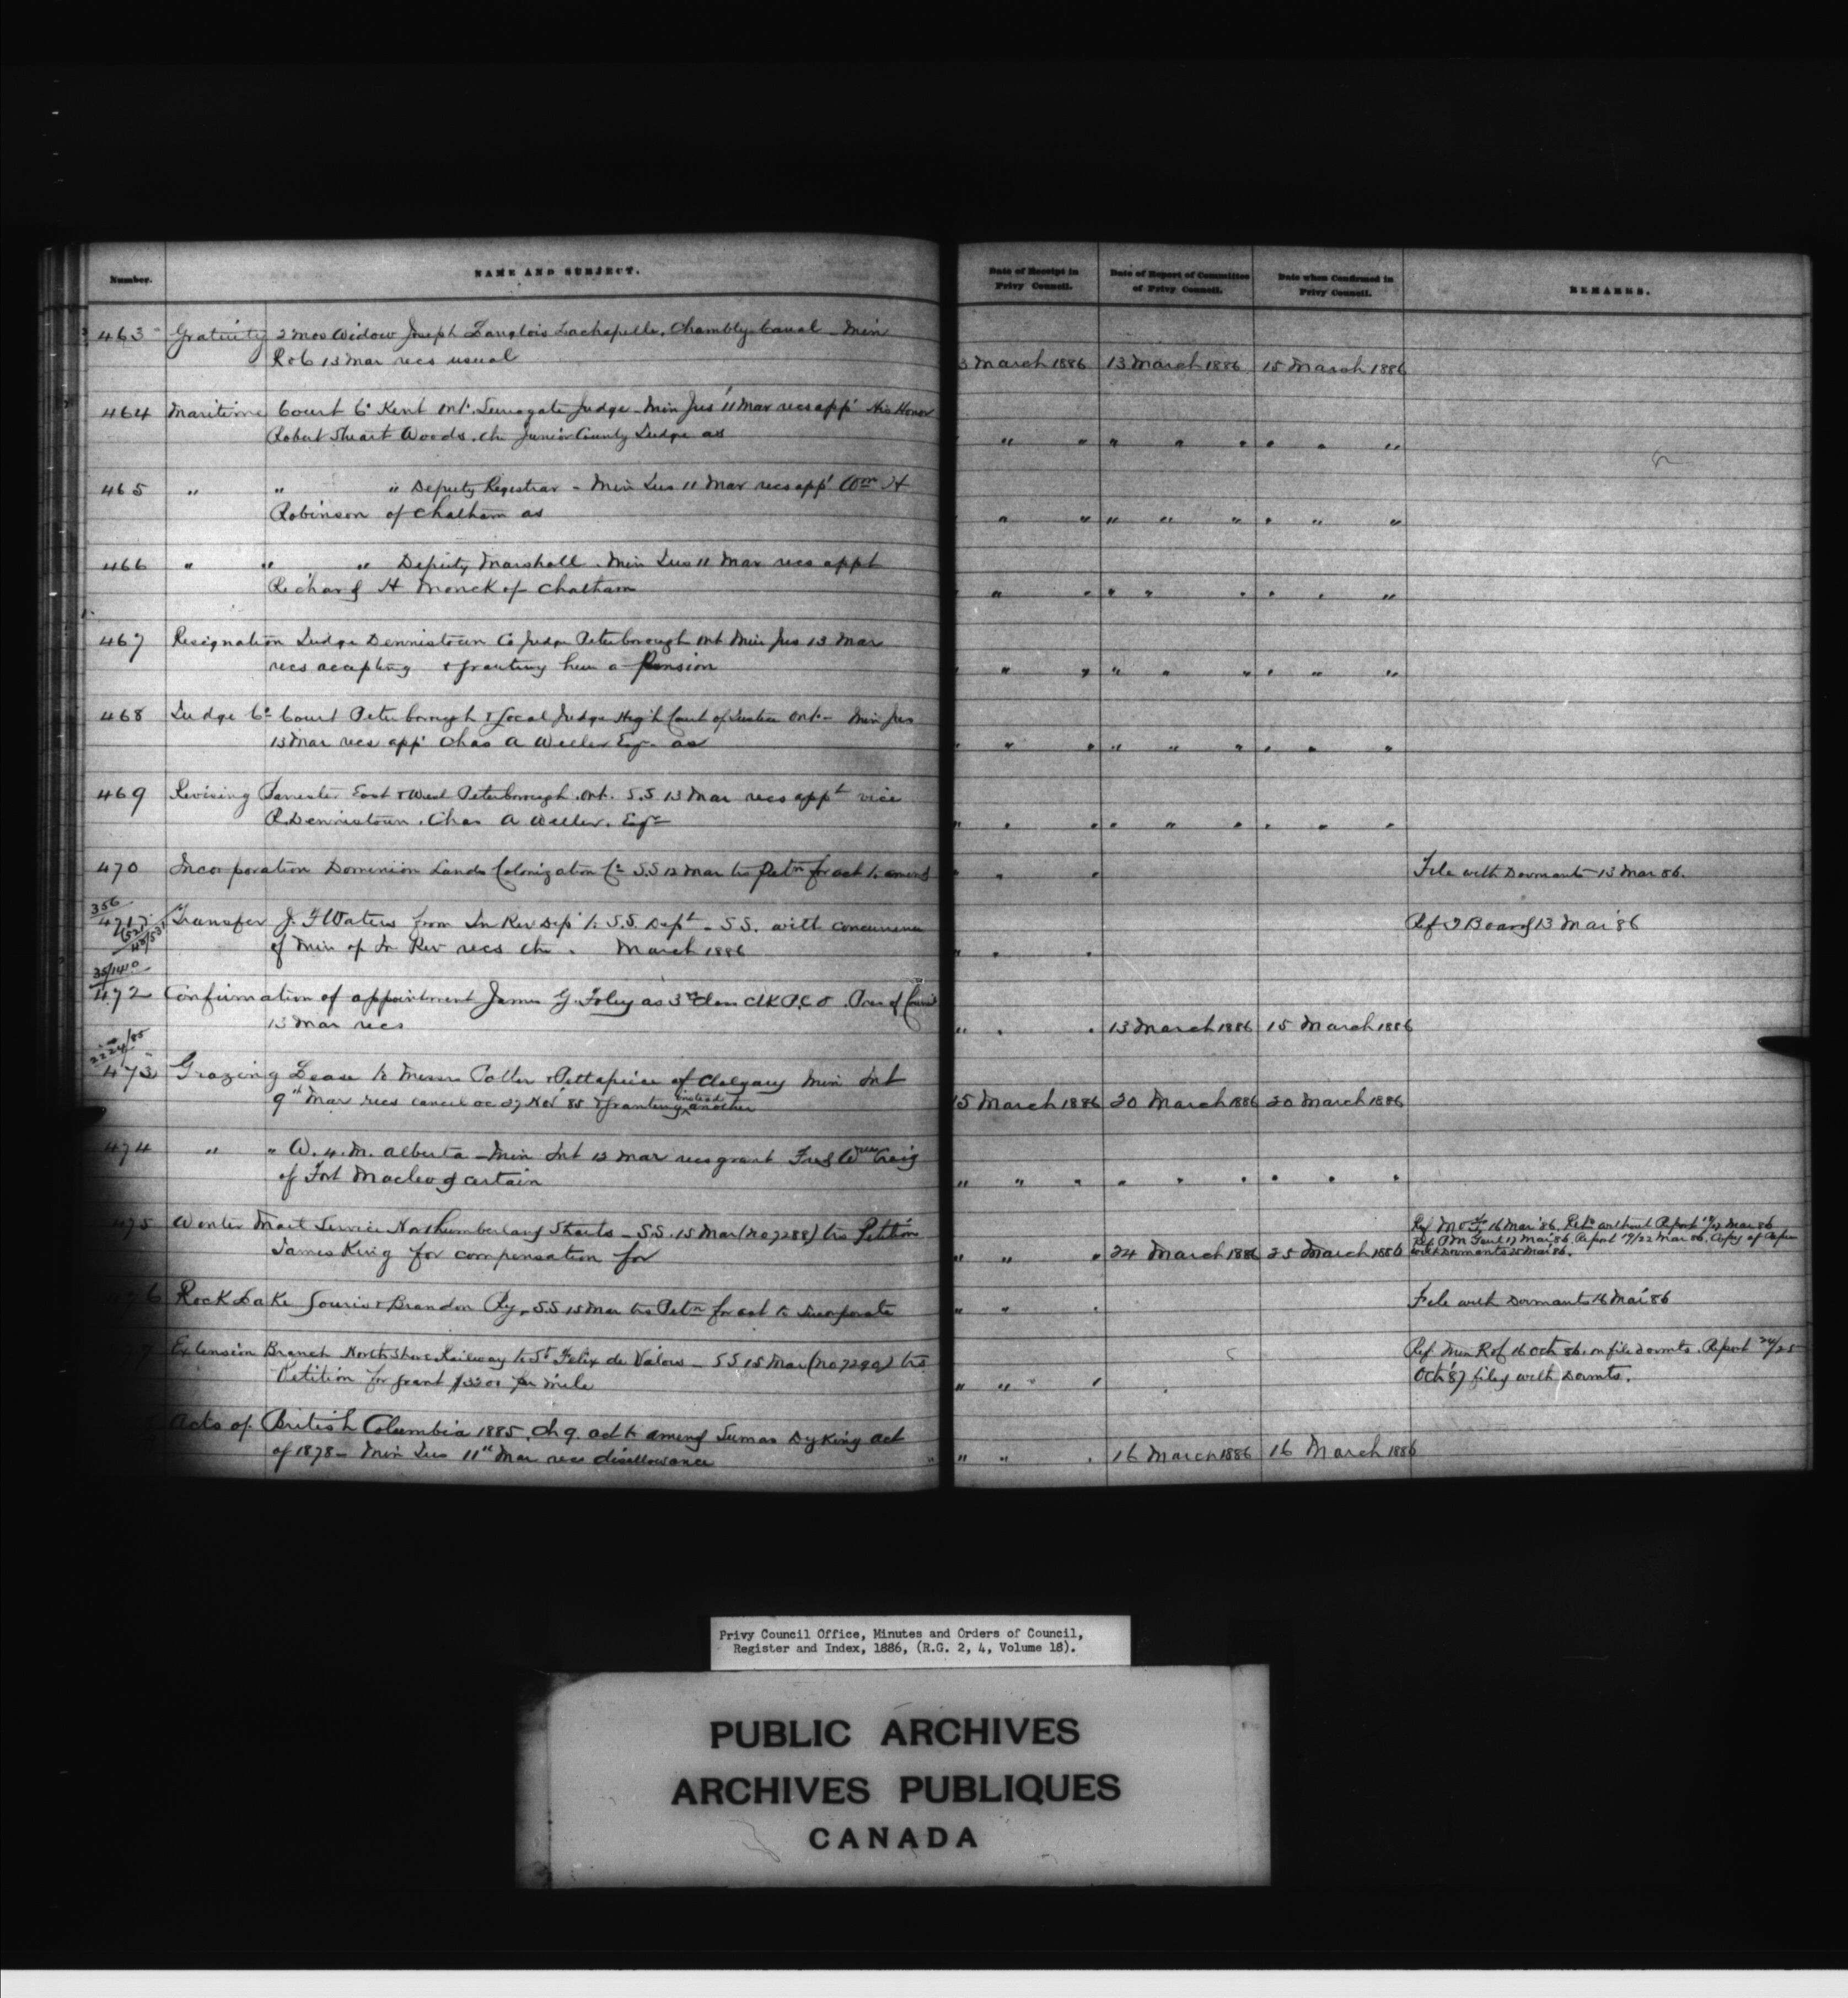 Number.
NAME AND SUBJECT.
Date of Receipt in Privy Council.
Date of Report of Committee of Privy Council.
Date when Confirmed in Privy Council.
REMARKS.
463 Gratuity 2 mos Widow Joseph Langlois Lachapelle, Chambly Canal - Min
R & C 13 Mar recs usual
3 March 1886 13 March 1886 15 March 1886
464 Maritime Court Co Kent Ont. Surrogate Judge - Min Jus 11 Mar recs appt His Honor
Robert Stuart Woods, Junior County Judge as
" " " " " " " "
465 " " " Deputy Registrar - Min Jus 11 Mar recs appt Wm H
Robinson of Chatham as
" " " " " " " "
466 " " " Deputy Marshall. Min Jus 11 Mar recs appt
Richard H Monck of Chatham
" " " " " " " "
467 Resignation Judge Dennistoun Co Judge Peterborough Ont Min Jus 13 Mar
recs accepting & granting him a Pension
" " " " " " " "
468 Judge Co Court Peterborough & Local Judge High Court of Justice Ont - Min Jus
13 Mar recs appt Chas A Weller Esq. as
" " " " " " " "
469 Revising Barrister East & West Peterborough. Ont. S.S 13 Mar recs appt vice
R. Dennistoun. Chas A Weller. Esqr
" " " " " " " "
470 Incorporation Dominion Lands Colonization Co S.S 12 Mar trs Petn for act to amend
" " "
File with Dormants 13 Mar 86.
356
471 Transfer J. F Waters from In Rev Dept to S.S. Dept - S.S. with concurrence
of Min of In Rev recs March 1886
" " "
Ref T Board 13 Mar '86
35/1410
472 Confirmation of appointment James G. Foley as 3rd Class Clk P.C.O. Pres of Council
13 Mar recs
" " " 13 March 1886 15 March 1886
2224/85
473 Grazing Lease to Messrs Cotter & Pettapiece of Calgary Min Int
9th Mar recs cancel OC 27 Nov 85 & granting instead another
15 March 1886 20 March 1886 20 March 1886
474 " " W. 4. M. Alberta - Min Int 12 Mar recs grant Fred Wm Craig
of Fort Macleod certain
" " " " " " " " "
475 Winter Mail Service Northumberland Straits - S.S. 15 Mar (no 7288) trs Petition
James King for compensation for
" " " 24 March 1886 25 March 1886
Ref M of F 16 Mar '86. Retd without Report 19/22 Mar 86
Ref P M Genl 17 Mar '86. Report 19/22 Mar 86. Copy of Paper
with Dormants 25 Mar '86.
476 Rock Lake Souris & Brandon Ry, S.S 15 Mar trs Petn for act to Incorporate
" " "
File with Dormants 16 Mar '86
Extension Branch North Shore Railway to St Felix de Valois - SS 15 Mar (no 7290) trs
Petition for grant $3200 per mile
" " "
Ref Min R of 16 Oct 86. on file dormts. Report 24/25
Oct '87 filed with Dormts.
Acts of British Columbia 1885. Ch 9. act to amend Sumas Dyking Act
of 1878 - Min Jus 11th Mar recs disallowance
" " " 16 March 1886 16 March 1886
Privy Council Office, Minutes and Orders of Council,
Register and Index, 1886, (R.G. 2, 4, Volume 18).
PUBLIC ARCHIVES
ARCHIVES PUBLIQUES
CANADA